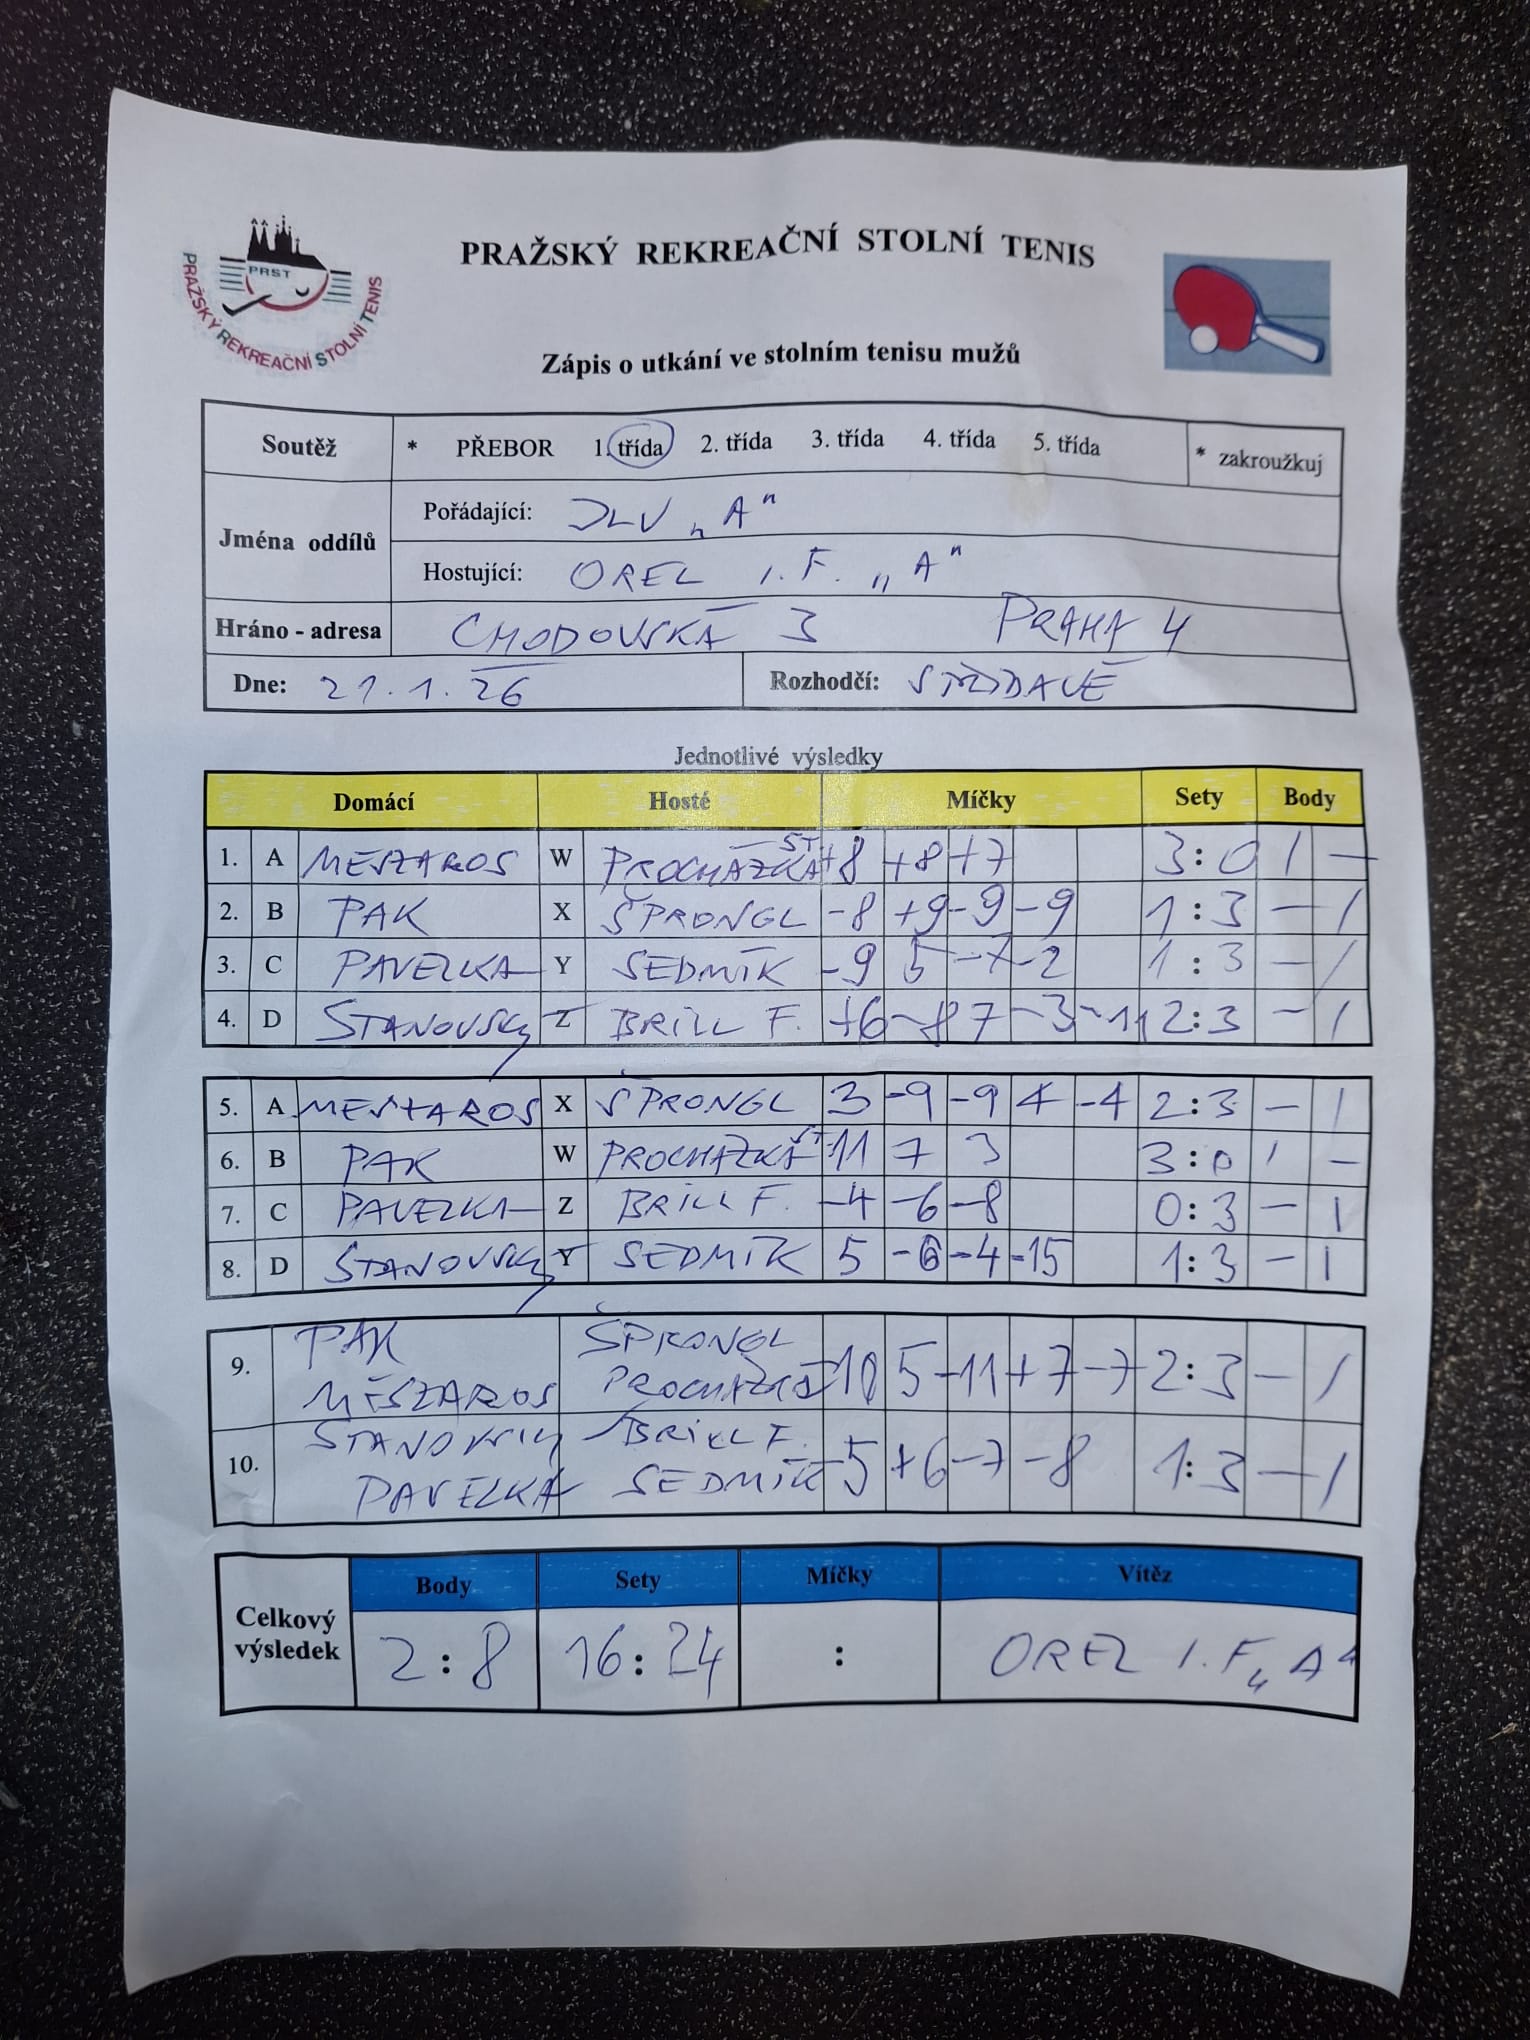 PRST
PRAŽSKÝ REKREAČNÍ STOLNÍ TENIS
PRAŽSKÝ REKREAČNÍ STOLNÍ TENIS
Zápis o utkání ve stolním tenisu mužů
Soutěž * PŘEBOR 1. třída 2. třída 3. třída 4. třída 5. třída * zakroužkuj
Jména oddílů
Pořádající: JLV „A"
Hostující: OREL I.F. „A"
Hráno - adresa CHODOVSKÁ 3 PRAHA 4
Dne: 21.1.26 Rozhodčí: STŘÍDAVĚ
Jednotlivé výsledky
Domácí Hosté Míčky Sety Body
1. A MESZAROS W PROCHÁZKA ST. +8 +8 +7 3:0 1 —
2. B PAK X ŠPRONGL -8 +9 -9 -9 1:3 — 1
3. C PAVELKA Y SEDMÍK -9 5 -7 -2 1:3 — 1
4. D STANOVSKÝ Z BRILL F. +6 -8 7 -3 -11 2:3 — 1
5. A MESZAROS X ŠPRONGL 3 -9 -9 4 -4 2:3 — 1
6. B PAK W PROCHÁZKA ST. 11 7 3 3:0 1 —
7. C PAVELKA Z BRILL F. -4 -6 -8 0:3 — 1
8. D STANOVSKÝ Y SEDMÍK 5 -6 -4 -15 1:3 — 1
9. PAK ŠPRONGL
MÉSZAROS PROCHÁZKA -10 5 -11 +7 -7 2:3 — 1
10. STANOVSKÝ BRILL F.
PAVELKA SEDMÍK -5 +6 -7 -8 1:3 — 1
Celkový výsledek
Body Sety Míčky Vítěz
2:8 16:24 : OREL I.F. „A"